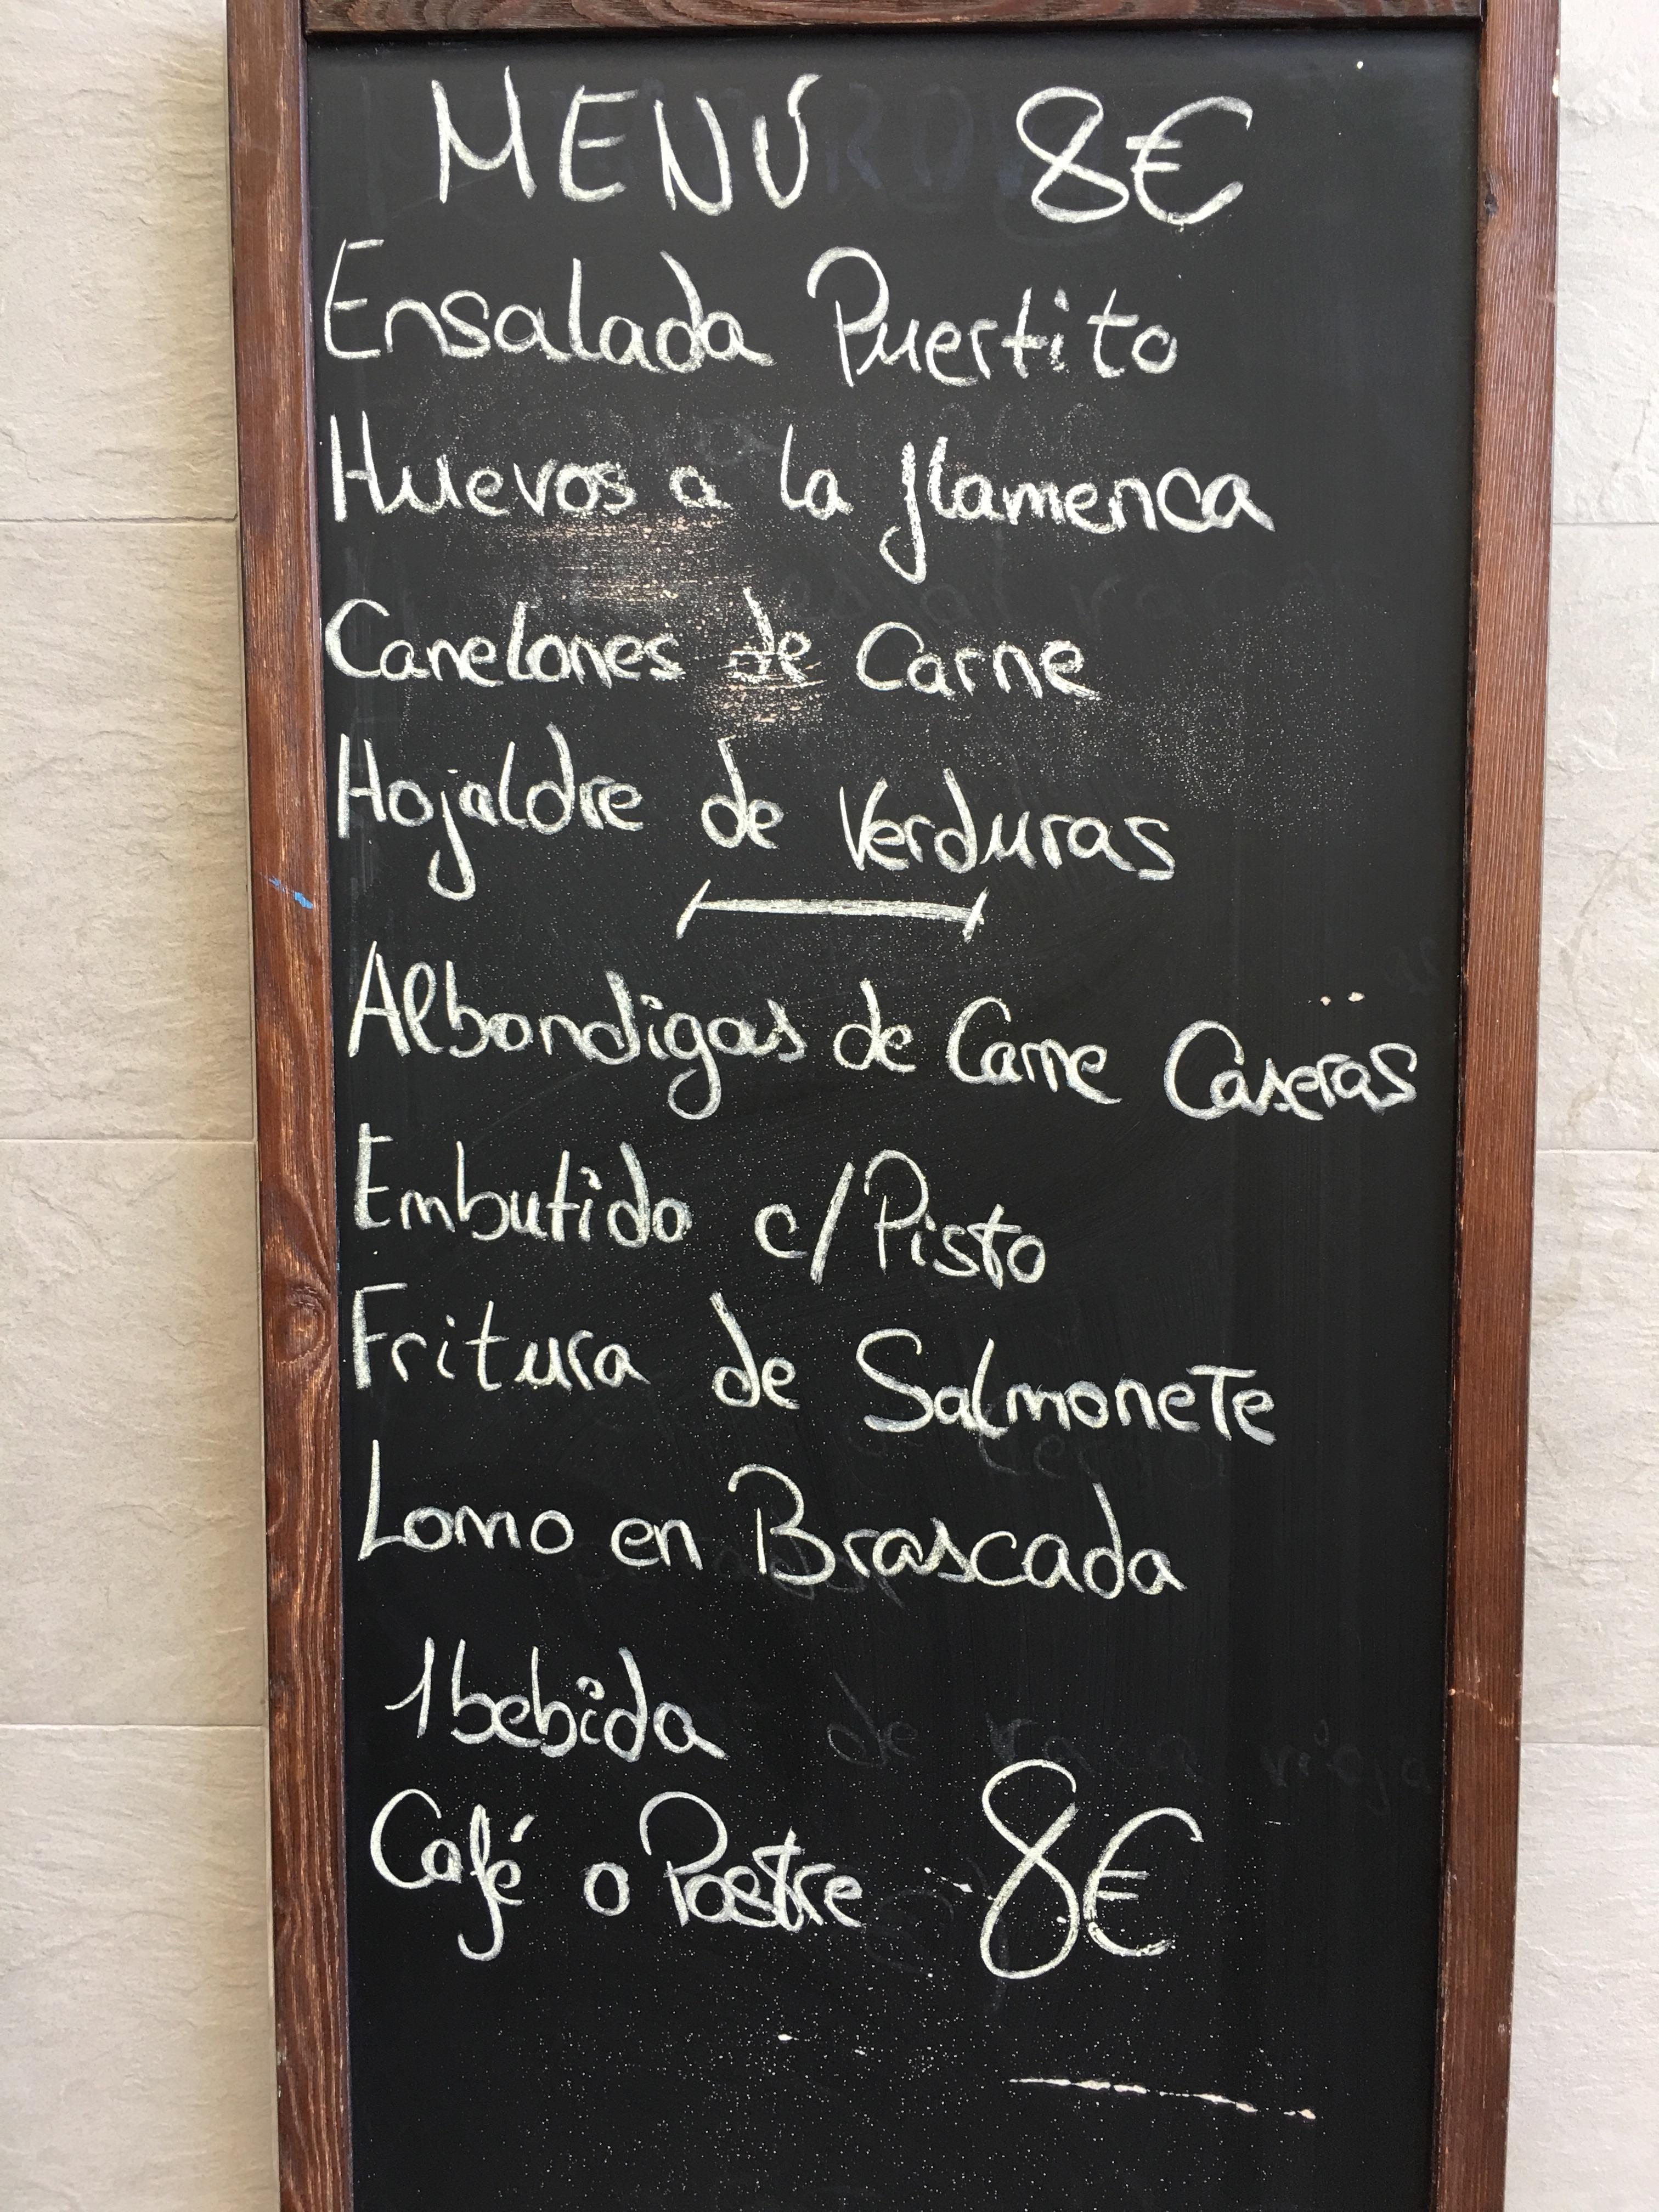 MENÚ 8€
Ensalada Puertito
Huevos a la flamenca
Canelones de Carne
Hojaldre de Verduras
Albondigas de Carne Caseras
Embutido c/Pisto
Fritura de Salmonete
Lomo en Brascada
1 bebida
Café o Postre 8€